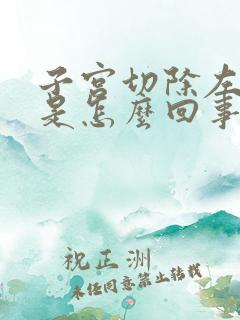 子宮切除左
是怎麼回事
祝正洲
未经同意禁止转载